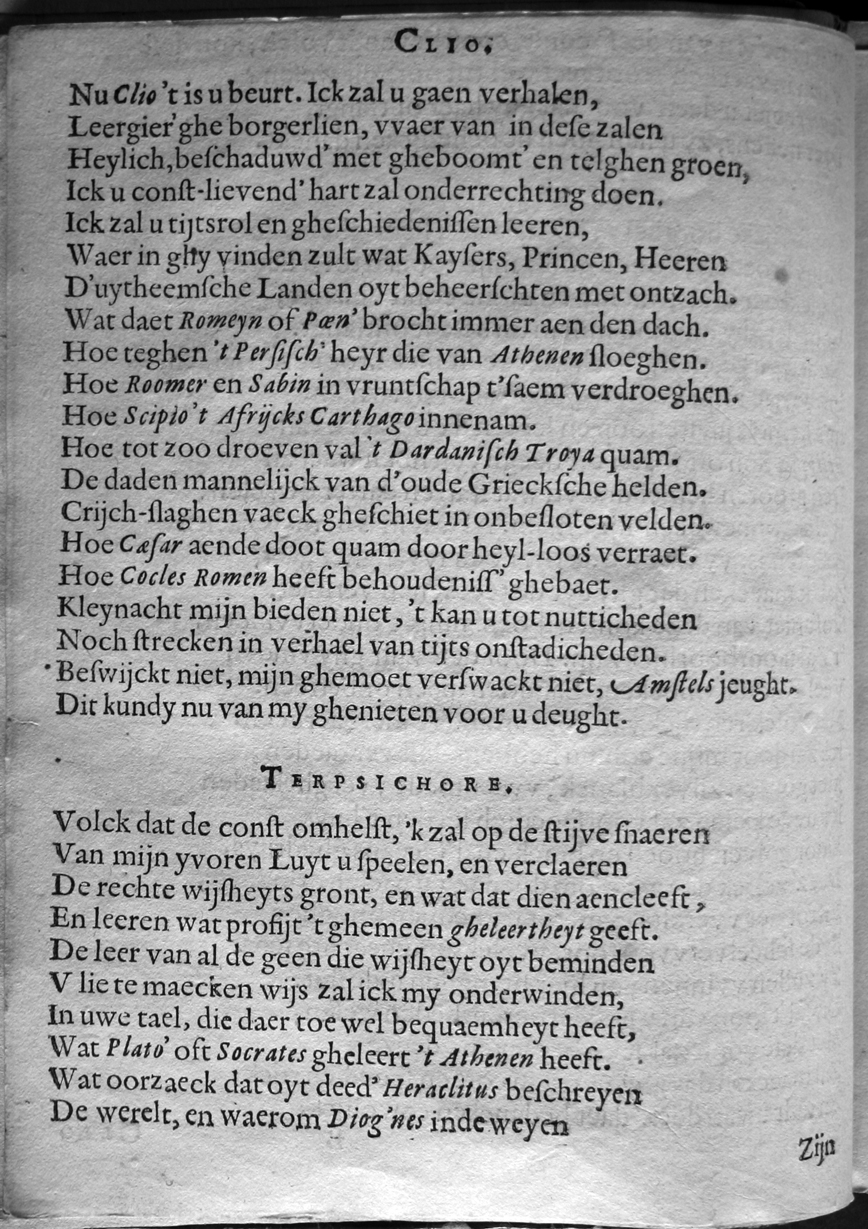 CLIO.
Nu Clio 't is u beurt. Ick zal u gaen verhalen,
Leergier'ghe borgerlien, vvaer van in dese zalen
Heylich, beschaduwd' met gheboomt' en telghen groen,
Ick u const-lievend' hart zal onderrechting doen.
Ick zal u tijtsrol en gheschiedenissen leeren,
Waer in ghy vinden zult wat Kaysers, Princen, Heeren
D'uytheemsche Landen oyt beheerschten met ontzach.
Wat daet Romeyn of Pœn' brocht immer aen den dach.
Hoe teghen 't Persisch' heyr die van Athenen sloeghen.
Hoe Roomer en Sabin in vruntschap t'saem verdroeghen.
Hoe Scipio 't Afrijcks Carthago innenam.
Hoe tot zoo droeven val 't Dardanisch Troya quam.
De daden mannelijck van d'oude Griecksche helden.
Crijch-slaghen vaeck gheschiet in onbesloten velden.
Hoe Cæsar aende doot quam door heyl-loos verraet.
Hoe Cocles Romen heeft behoudeniss' ghebaet.
Kleynacht mijn bieden niet, 't kan u tot nutticheden
Noch strecken in verhael van tijts onstadicheden.
Beswijckt niet, mijn ghemoet verswackt niet, Amstels jeught.
Dit kundy nu van my ghenieten voor u deught.
TERPSICHORE.
Volck dat de const omhelst, 'k zal op de stijve snaeren
Van mijn yvoren Luyt u speelen, en verclaeren
De rechte wijsheyts gront, en wat dat dien aencleeft,
En leeren wat profijt 't ghemeen gheleertheyt geeft.
De leer van al de geen die wijsheyt oyt beminden
V lie te maecken wijs zal ick my onderwinden,
In uwe tael, die daer toe wel bequaemheyt heeft,
Wat Plato' oft Socrates gheleert 't Athenen heeft.
Wat oorzaeck dat oyt deed' Heraclitus beschreyen
De werelt, en waerom Diog'nes inde weyen
Zijn